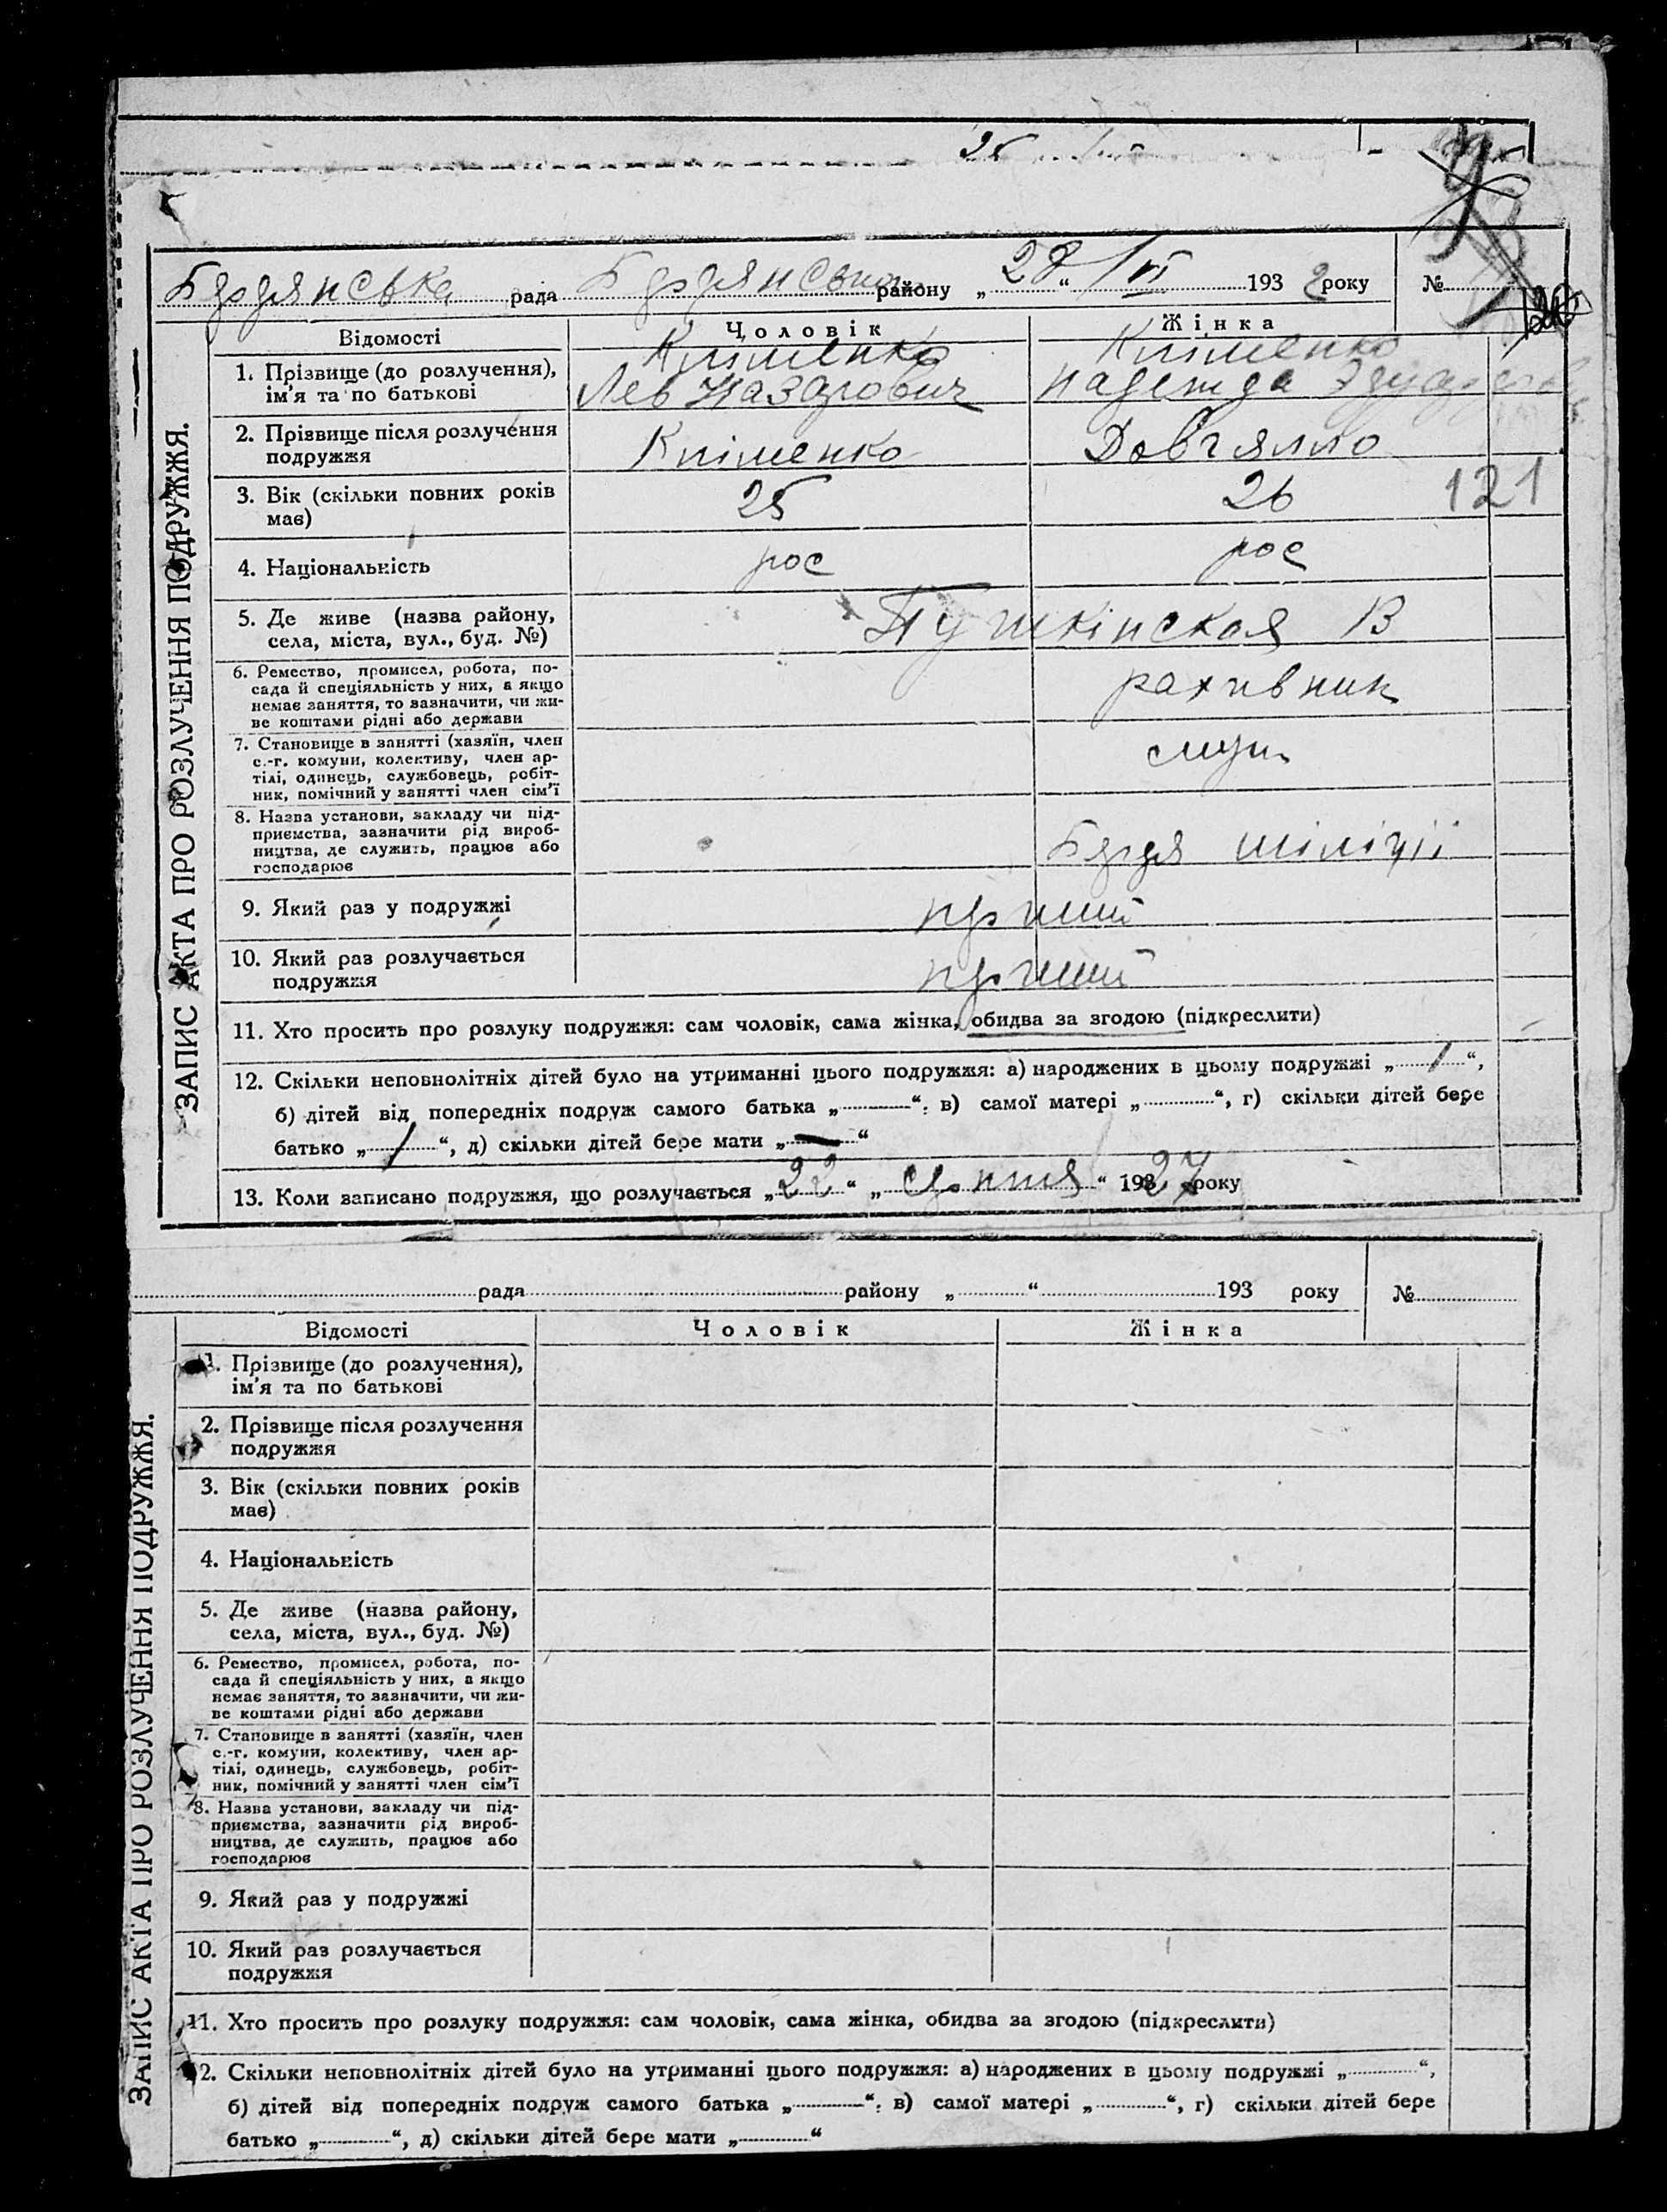 Бердянська рада Бердянського району „28“ VI 1932 року №
Відомості Чоловік Жінка
1. Прізвище (до розлучення), ім'я та по батькові
Кліменко Кліменко
Лев Назарович Надежда
2. Прізвище після розлучення подружжя
Кліменко Довгялло
3. Вік (скільки повних років має)
25 26 121
4. Національність
рос рос
5. Де живе (назва району, села, міста, вул., буд. №)
Пушкінская 13
6. Ремество, промисел, робота, по-
сада й спеціяльність у них, а якщо
немає заняття, то зазначити, чи жи-
ве коштами рідні або держави
рахивник
7. Становище в занятті (хазяїн, член
с.-г. комуни, колективу, член ар-
тілі, одинець, службовець, робіт-
ник, помічний у занятті член сім'ї
служ
8. Назва установи, закладу чи під-
приємства, зазначити рід вироб-
ництва, де служить, працює або
господарює
Бердя міліції
9. Який раз у подружжі
перший
10. Який раз розлучається
подружжя
перший
11. Хто просить про розлуку подружжя: сам чоловік, сама жінка, обидва за згодою (підкреслити)
12. Скільки неповнолітніх дітей було на утриманні цього подружжя: а) народжених в цьому подружжі „1“,
б) дітей від попередніх подруж самого батька „“. в) самої матері „“, г) скільки дітей бере
батько „1“, д) скільки дітей бере мати „—“
13. Коли записано подружжя, що розлучається „22“ „серпня“ 1927 року
ЗАПИС АКТА ПРО РОЗЛУЧЕННЯ ПОДРУЖЖЯ.
рада району „“ 193 року №
Відомості Чоловік Жінка
1. Прізвище (до розлучення),
ім'я та по батькові
2. Прізвище після розлучення
подружжя
3. Вік (скільки повних років
має)
4. Національність
5. Де живе (назва району,
села, міста, вул., буд. №)
6. Ремество, промисел, робота, по-
сада й спеціяльність у них, а якщо
немає заняття, то зазначити, чи жи-
ве коштами рідні або держави
7. Становище в занятті (хазяїн, член
с.-г. комуни, колективу, член ар-
тілі, одинець, службовець, робіт-
ник, помічний у занятті член сім'ї
8. Назва установи, закладу чи під-
приємства, зазначити рід вироб-
ництва, де служить, працює або
господарює
9. Який раз у подружжі
10. Який раз розлучається
подружжя
11. Хто просить про розлуку подружжя: сам чоловік, сама жінка, обидва за згодою (підкреслити)
12. Скільки неповнолітніх дітей було на утриманні цього подружжя: а) народжених в цьому подружжі „“,
б) дітей від попередніх подруж самого батька „“. в) самої матері „“, г) скільки дітей бере
батько „“, д) скільки дітей бере мати „“
ЗАПИС АКТА ПРО РОЗЛУЧЕННЯ ПОДРУЖЖЯ.